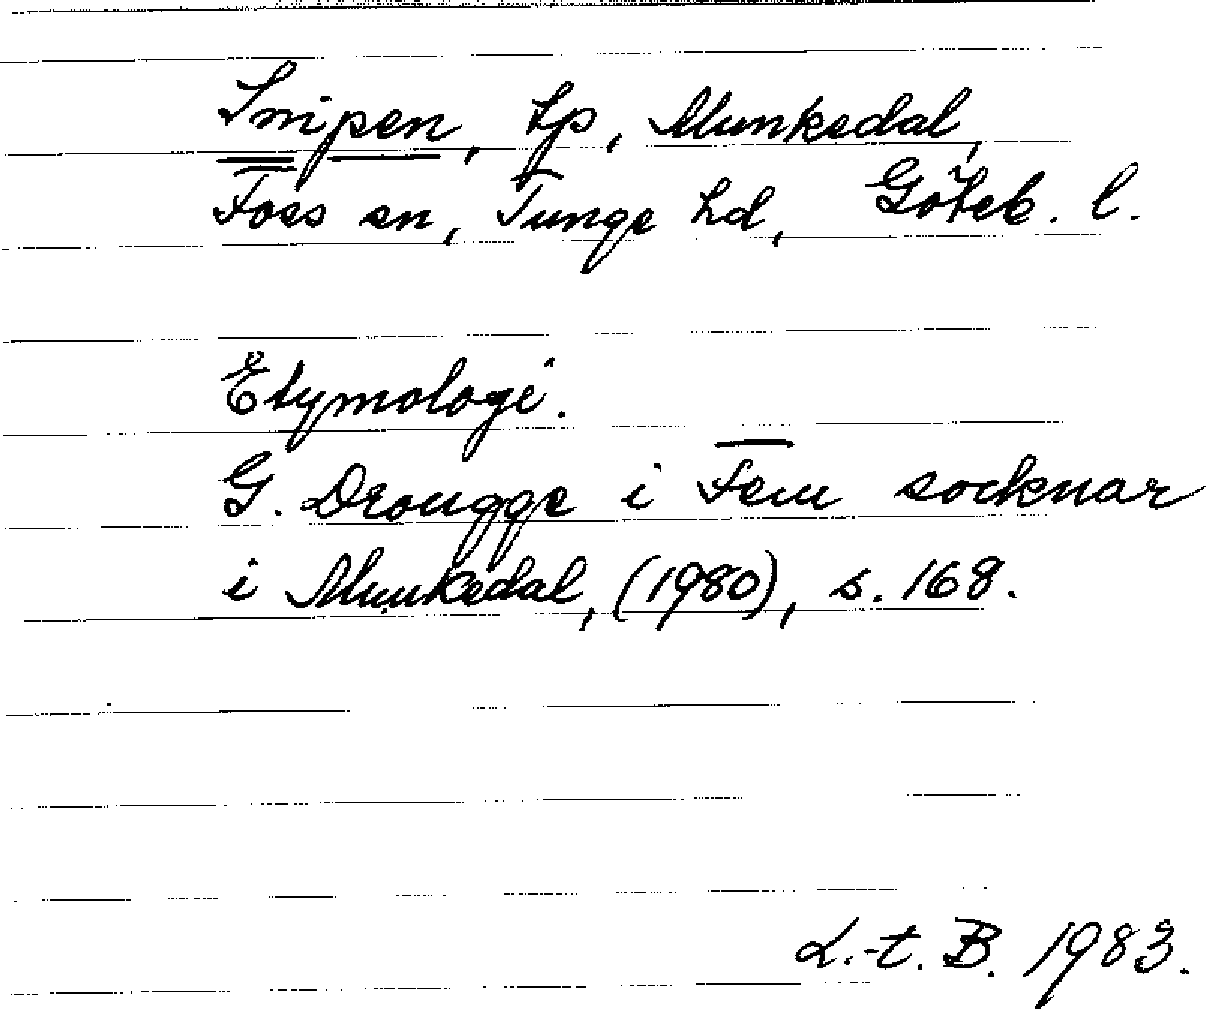 Snipen, tp, Munkedal,
Foss sn, Tunge hd, Göteb. l.
Etymologi.
G. Drougge i Fem socknar
i Munkedal, (1980), s. 168.
L.-t. B. 1983.